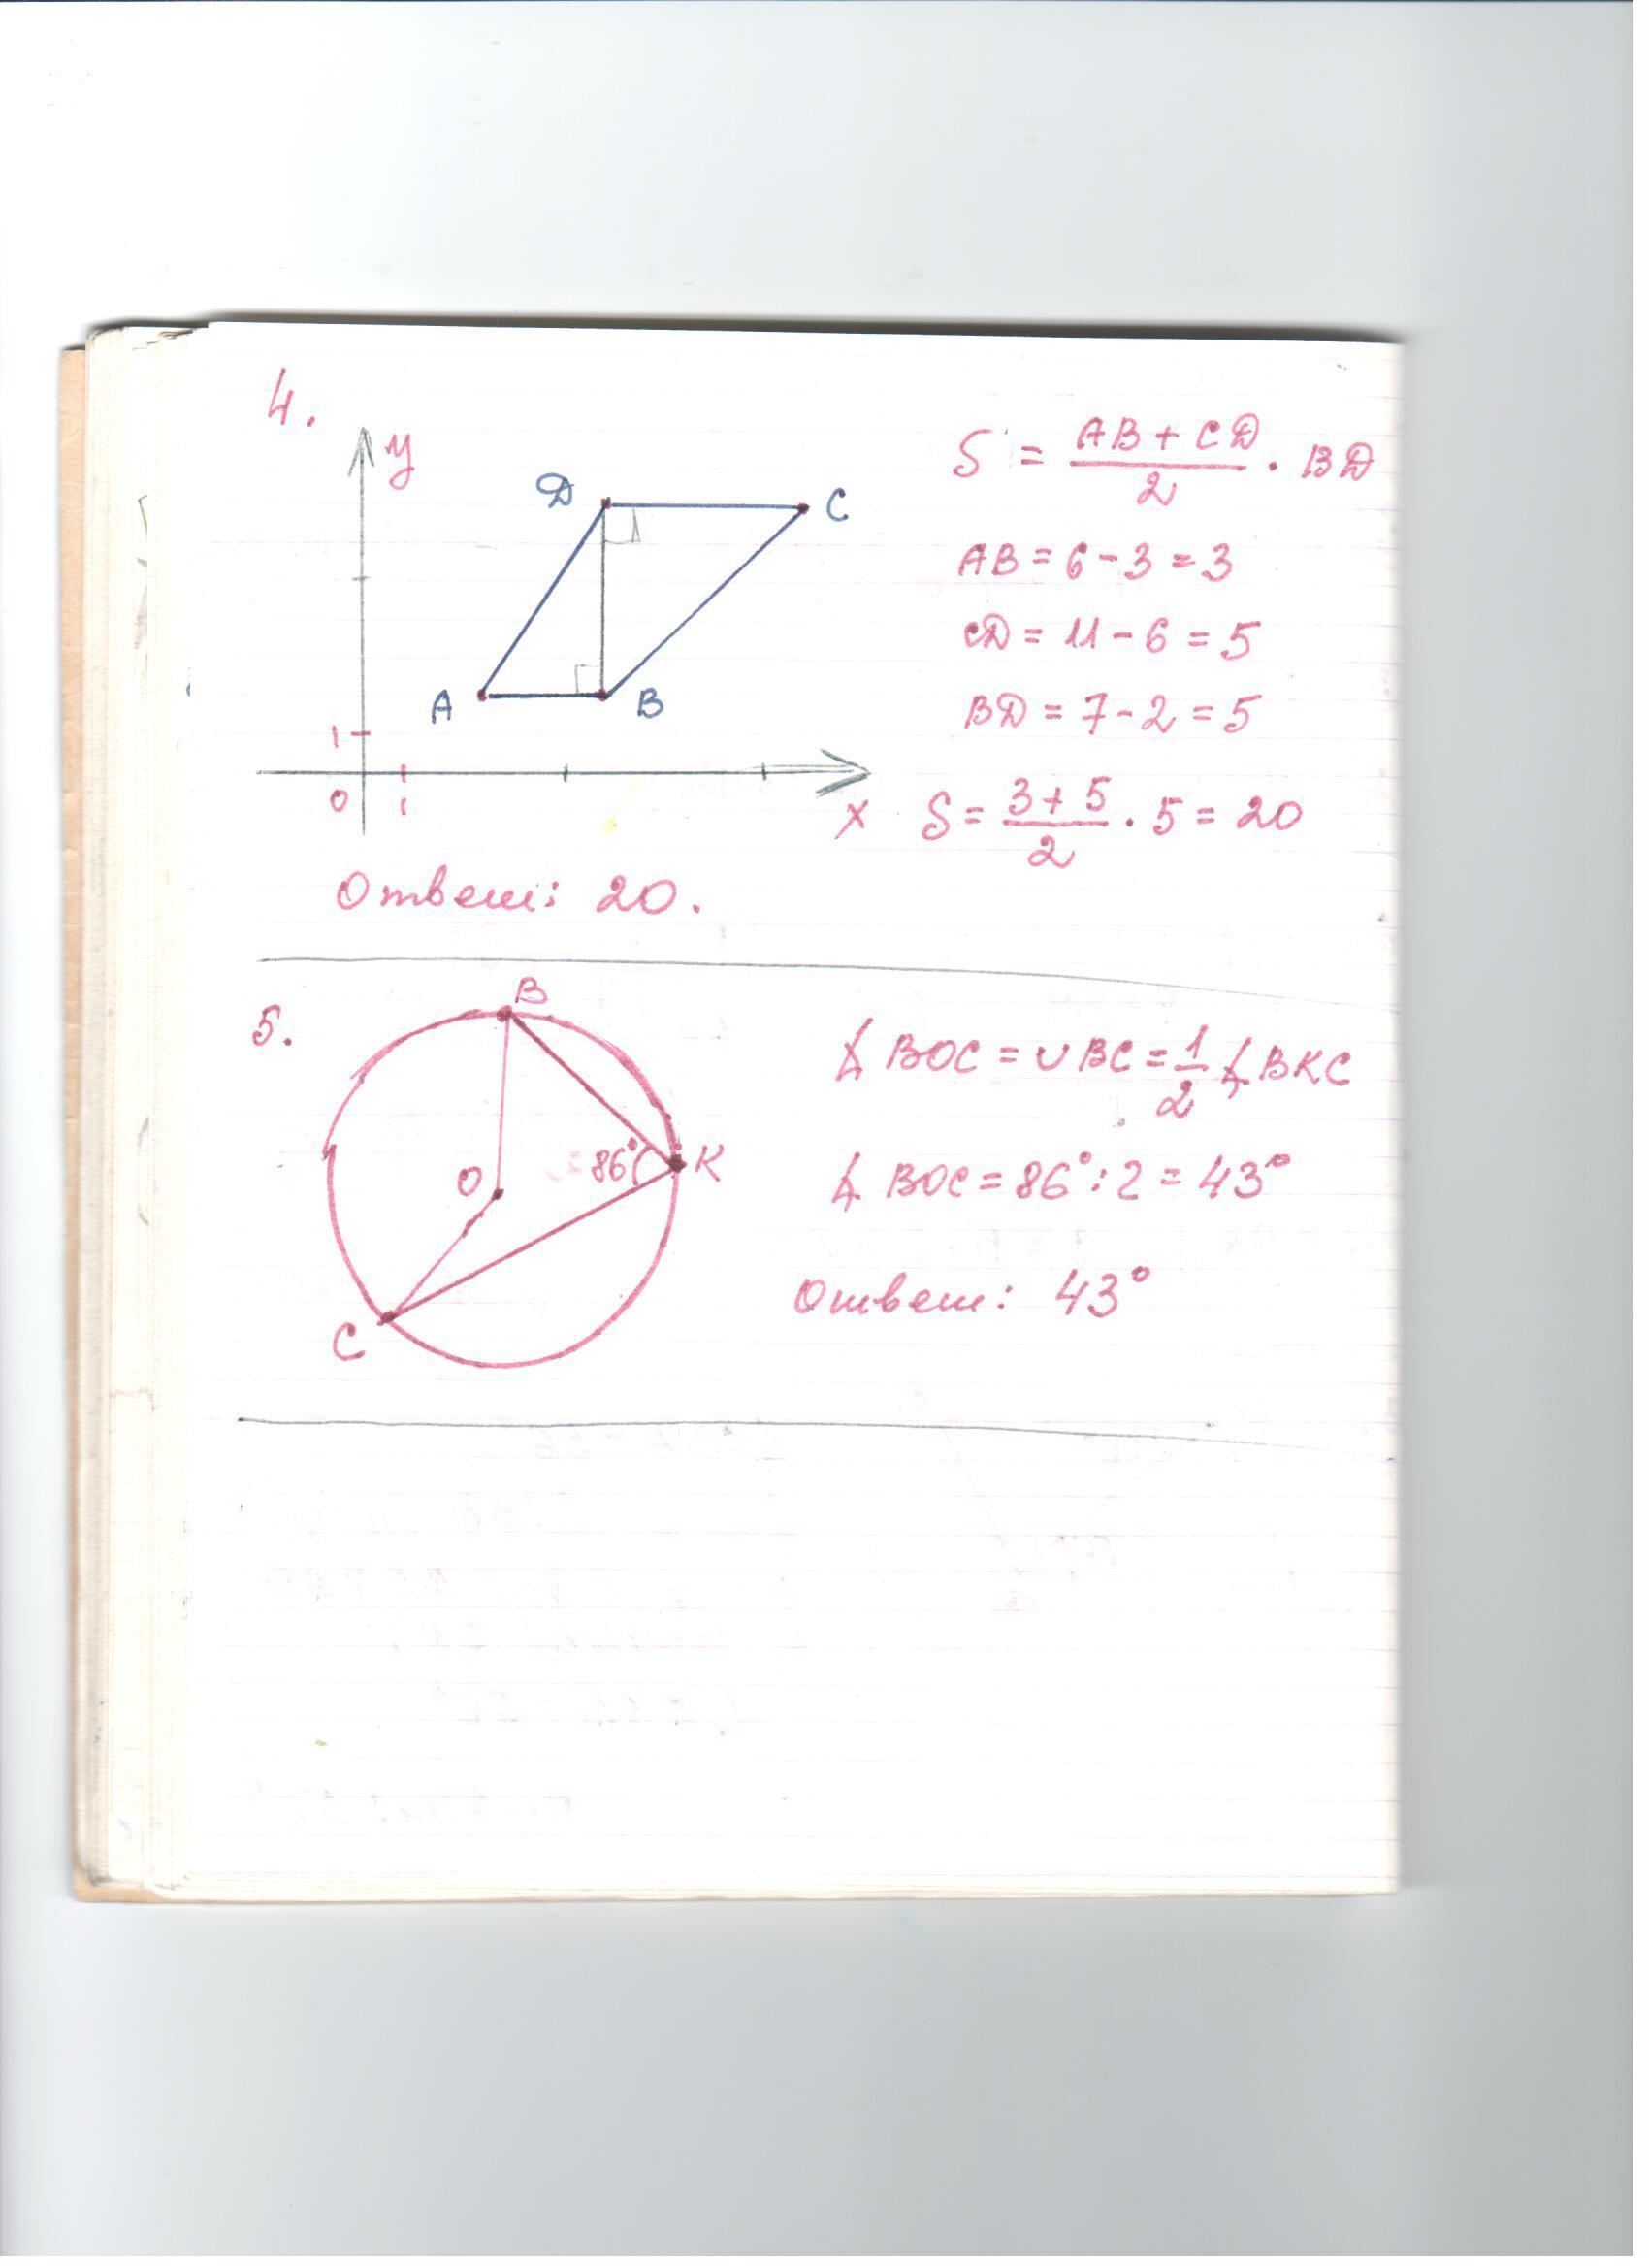 4.
y
D
C
A
B
1
0
1
x
S = (AB + CD)/2 · BD
AB = 6 - 3 = 3
CD = 11 - 6 = 5
BD = 7 - 2 = 5
S = (3 + 5)/2 · 5 = 20
Ответ: 20.
5.
B
O
86°
K
C
∡ BOC = ∪ BC = 1/2 ∡ BKC
∡ BOC = 86° : 2 = 43°
Ответ: 43°